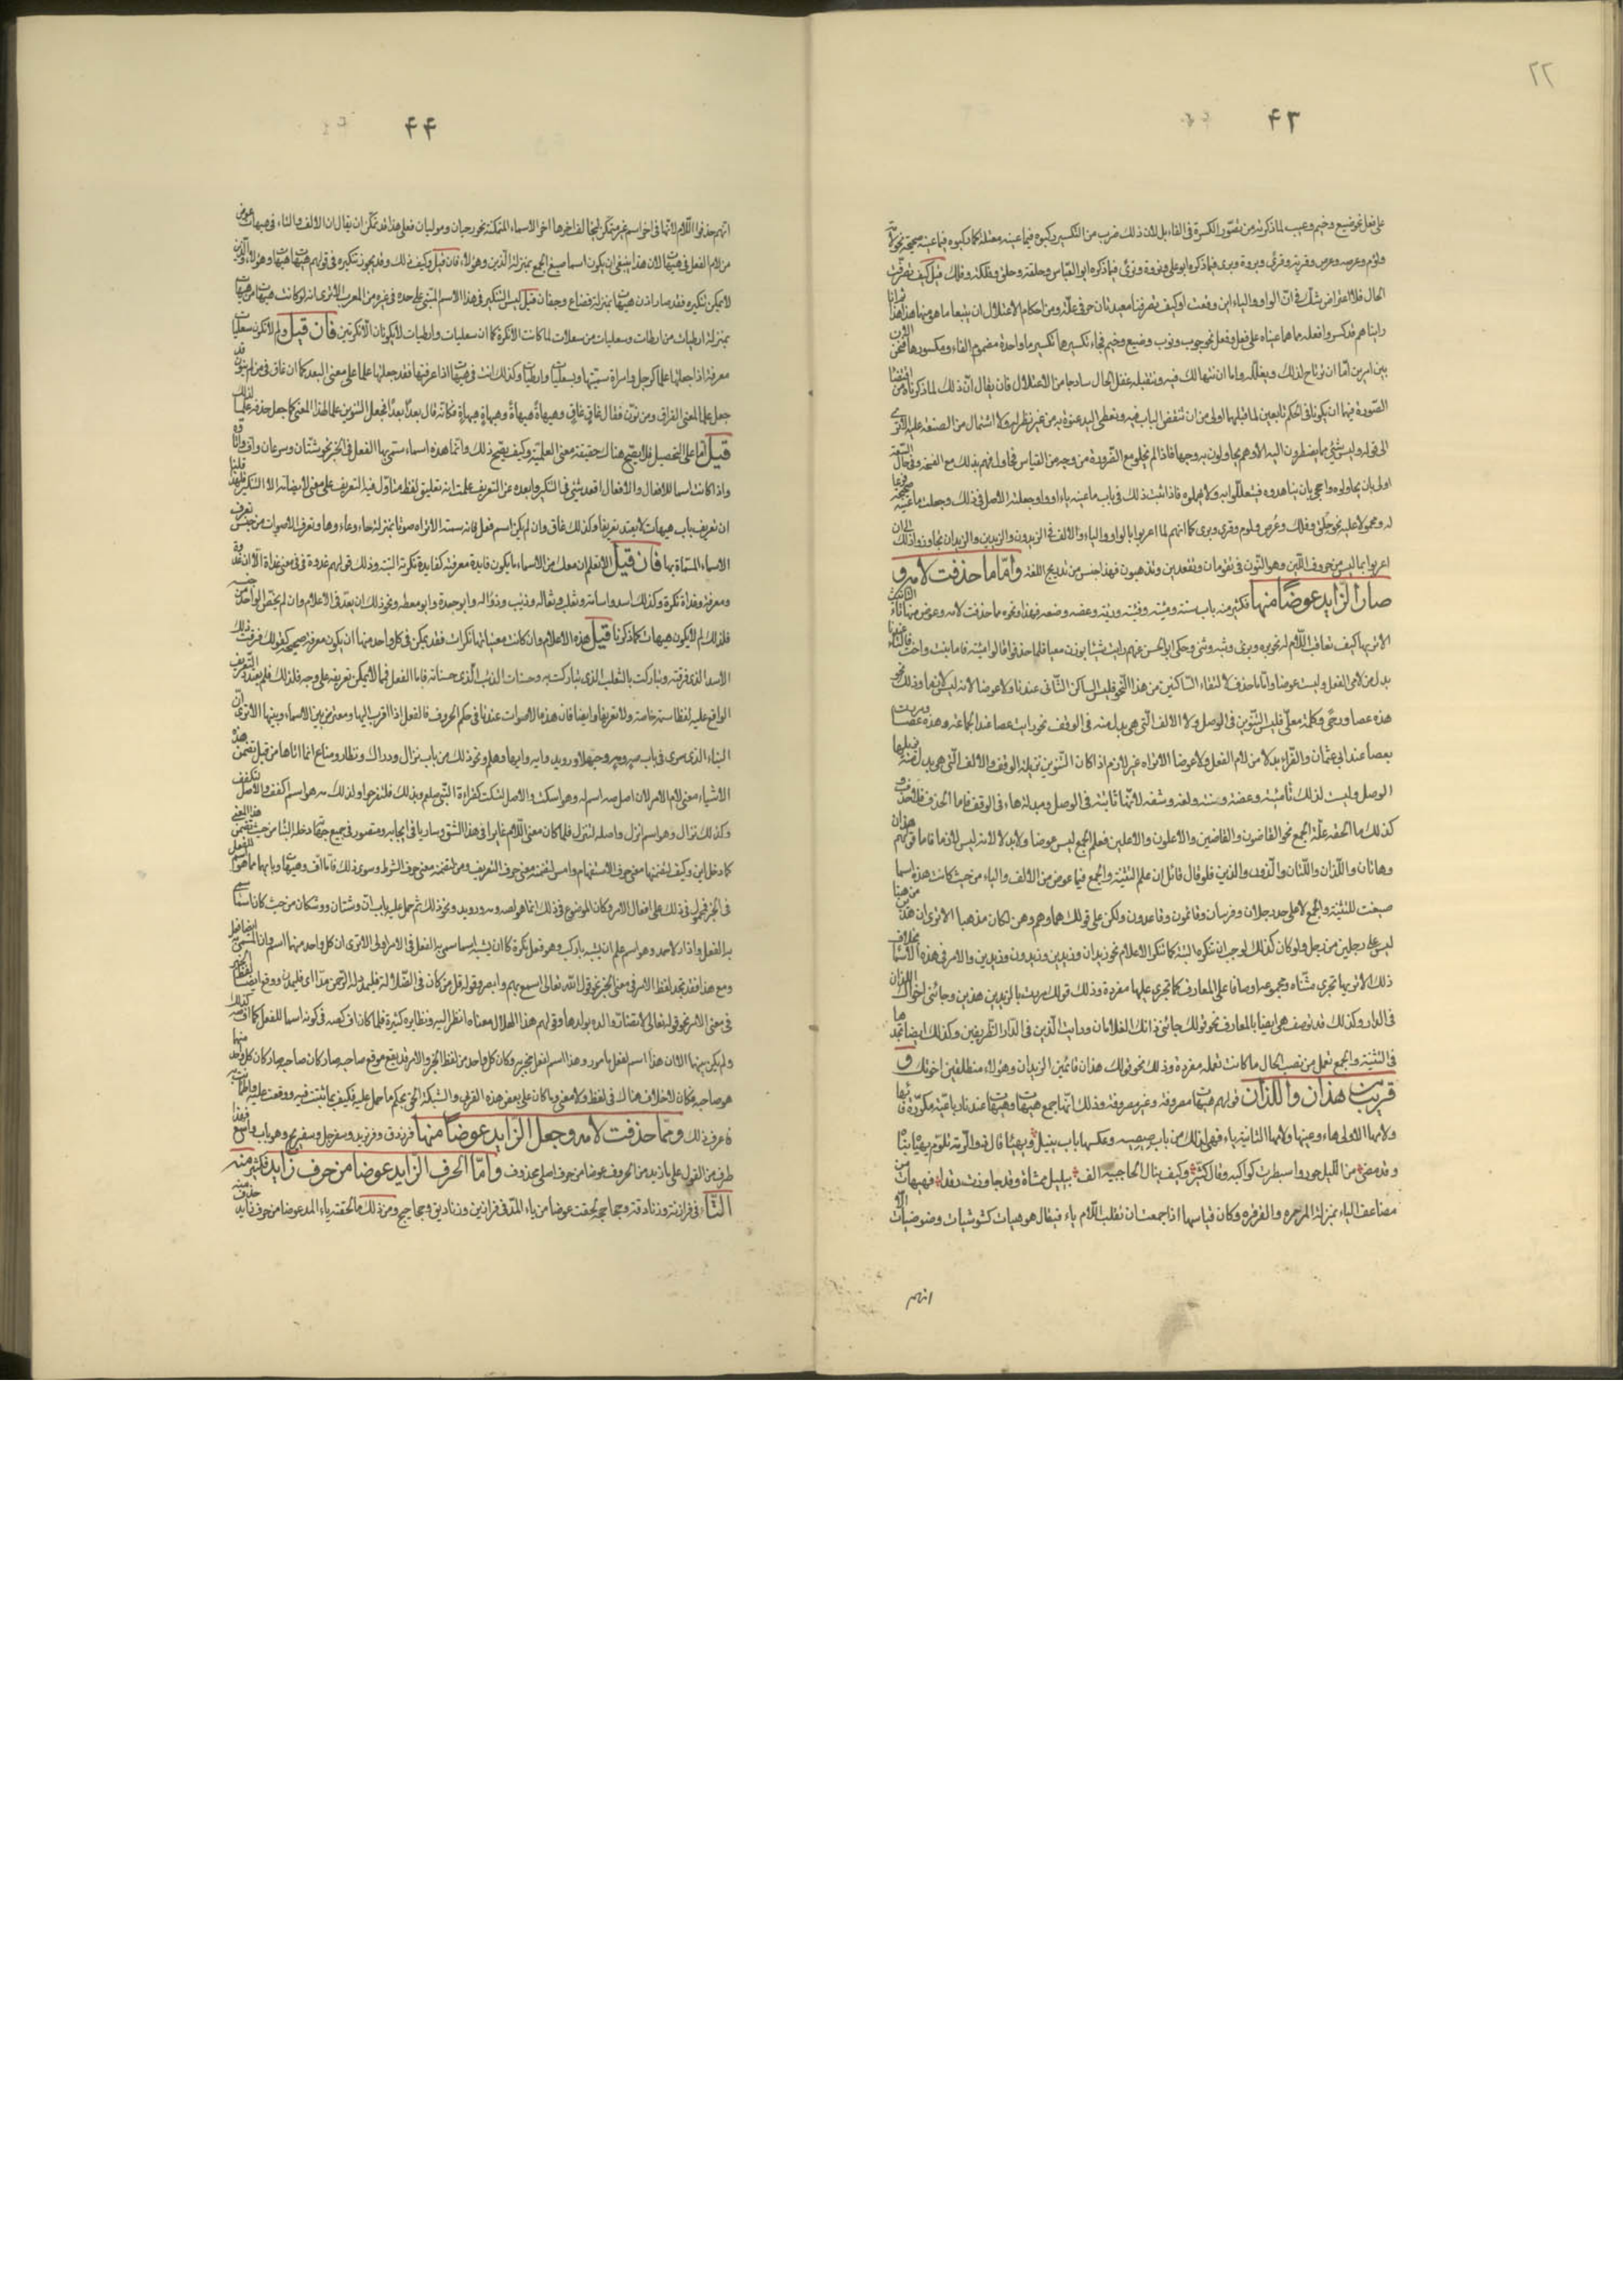 ٤٣
على فعل نحو ضيع وخيم وعيب لما ذكرته من تصور الكسرة في الفاء بل لان ذلك ضرب من التكسير ركبوه فيما عينه معتلة كما ركبوه فيما عينه صحيحة نحو
الحال فلا اعتراض شك في ان الواو والياء اين وقعت اوكيف تصرفتا معيدتان حرفي علة ومن احكام الاعتلال ان يتبعا ما هو منهما هذا
رايناهم قد كسروا فعله مما هما عيناه على فعل وفعل نحو جوب ونوب وضيع وخيم فجاء تكسيرهما تكسير ما واحده مضموم الفاء ومكسورها فنحن
بين امرين اما ان نرتاح لذلك ونعلله واما ان نتهالك فيه ونتقبله غفل الحال ساذجا من الاعتلال فان يقال ان ذلك لما ذكرناه من
الصورة فيهما ان يكونا في الحكم تابعين لما قبلهما اولى من ان ننقض الباب فيه ونعطي اليد عنوة به من غير نظر له ولا اشتمال من الصنعة عليه الا ترى
الى قوله وليس شيء مما يضطرون اليه الا وهم يحاولون به وجها فاذا لم يخل مع الضرورة من وجه من القياس محاول فهم بذلك مع الفسحة وفي حال السعة
اولى بان يحاولوه واحجى بان يناهدوه فيتعللوا به ولا يهملوه فاذا ثبت ذلك في باب ما عينه ياء او واو جعلته الاصل في ذلك وجعلت ما عينه صحيحة
له ومحمولا عليه نحو حلق وفلك وعرص ولوم وقرى وبرى كما انهم لما اعربوا بالواو والياء والالف في الزيدون والزيدين والزيدان تجاوزوا ذلك الى ان
اعربوا بما ليس من حروف اللين وهو النون في تقومان وتقعدين وتذهبون فهذا جنس من تدريج اللغة واما ما حذفت لامه و
صار الزايد عوضا منها فكثير منه باب سنة ومئة وفئة ورئة وعضة وضعة فهذا ونحوه مما حذفت لامه وعوض منها تاء التانيث
الا تراها كيف تعاقب اللام في نحو بره وبرى وثبه وثبى وحكى ابو الحسن عنهم رايت مئيا بوزن معيا فلما حذفوا قالوا مئة فاما بنت واخت فالتاء عندنا
بدل من لامي الفعل وليست عوضا واما ما حذف لالتقاء الساكنين من هذا النحو فليس الساكن الثاني عندنا ولا عوضا لانه ليس لازما وذلك نحو
هذه عصا ورحى وكلمت معلى فليس التنوين في الوصل ولا الالف التي هي بدل منه في الوقف نحو رايت عصا عند الجماعة وهذه عصا ومررت
بعصا عند ابي عثمان والفراء بدلا من لام الفعل ولا عوضا الا تراه غير لازم اذ كان التنوين يزيله الوقف والالف التي هي بدل منه يزيلها
الوصل وليست كذلك تاء مئة وعضة وسنة ولغة وشفة لانها ثابتة في الوصل ومبدلة هاء في الوقف فاما الحذف فلا حذف و
كذلك ما الحقه علم الجمع نحو القاضون والقاضين والاعلون والاعلين فعلم الجمع ليس عوضا ولا بدلا لانه ليس لازما فاما قولهم هذان
وهاتان واللذان واللتان والذين واللذون فلو قال قائل ان علم التثنية والجمع فيها عوض من الالف والياء من حيث كانت هذه اسما
صيغت للتثنية والجمع لا على حد رجلان وفرسان وقائمون وقاعدون ولكن على قولك هما وهم وهن لكان مذهبا الا ترى ان هذين من هذا
ليس على رجلين من رجل ولو كان كذلك لوجب ان تنكره البتة كما تنكر الاعلام نحو زيدان وزيدين وزيدون وزيدين والامر في هذه الاسما بخلاف
ذلك الا تراها تجري مثناة ومجموعة اوصافا على المعارف كما تجري عليها مفردة وذلك قولك مررت بالزيدين هذين وجائني اخواك اللذان
في الدار وكذلك قد توصف هي ايضا بالمعارف نحو قولك جائني ذانك الغلامان ورايت الذين في الدار الظريفين وكذلك ايضا تجدها
في التثنية والجمع تعمل من نصب الحال ما كانت تعمله مفردة وذلك نحو قولك هذان قائمين الزيدان وهؤلاء منطلقين اخوتك و
قريب من هذان واللذان قولهم هيهات مصروفة وغير مصروفة وذلك انها جمع هيهات وهيهات عندنا رباعية مكررة فاؤها
ولامها الاولى هاء وعينها ولامها الثانية ياء فهي لذلك من باب صيصية وعكسها باب يليل ويهياه قال ذو الرمة تلوم يهياه بياه
وقد مضى من الليل جوز واسبطرت كواكبه وقال كثير وكيف ينال الحاجبية الف بيليل ممساه وقد جاوزت رقدا فهيهات من
مضاعف الياء بمنزلة المرمرة والقرقرة وكان قياسها اذا جمعت ان تقلب اللام ياء فيقال هيهيات كشوشيات وضوضيات الا
انهم
٤٤
انهم حذفوا اللام لانها في اخر اسم غير متمكن ليخالف اخرها اخر الاسماء المتمكنة نحو رحيان ومولیان فعلى هذا قد يمكن ان يقال ان الالف والتاء في هيهات عوض
من لام الفعل في هيهات لان هذا ينبغي ان يكون اسما صيغ للجمع بمنزلة الذين وهؤلاء فان قيل وكيف ذلك وقد يجوز تنكيره في قولهم هيهات هيهات وهؤلاء والذين
لا يمكن تنكيره فقد صار اذن هيهات بمنزلة قصاع وجفان قيل ليس التنكير في هذا الاسم المبني على حده في غيره من المعرب الا ترى انه لو كانت هيهات من هيهات
بمنزلة ارطيات من ارطات وسعليات من سعلات لما كانت الا نكرة كما ان سعليات وارطيات لا يكونان الا نكرتين فان قيل ولم لا تكون سعليات
معرفة اذا جعلتها علما كرجل او امراة سميتها بسعليات وارطيات وكذلك انت في هيهات اذا عرفتها فقد جعلتها علما على معنى البعد كما ان غاق فيمن لم ينون قد
جعل علما لمعنى الفراق ومن نون فقال غاق غاق وهيهاة هيهاة وهيهاة هيهاة فكانه قال بعدا بعدا فجعل التنوين علما لهذا المعنى كما جعل حذفه علما لذلك
قيل اما على التحصيل فلا يصح هناك حقيقة معنى العلمية وكيف يصح ذلك وانما هذه اسماء سمي بها الفعل في الخبر نحو شتان وسرعان واف واوتاه
واذا كانت اسما للافعال والافعال اقعد شيء في التنكير وابعده عن التعريف علمت انه تعليق لفظ متاول فيه التعريف على معنى لا يضامه الا التنكير فلهذا قلنا
ان تعريف باب هيهات لا يعتد تعريفا وكذلك غاق وان لم يكن اسم فعل فانه على سمته الا تراه صوتا بمنزلة حاء وعاء وهاء وتعرف الاصوات من جنس تعرف
الاسماء المسماة بها فان قيل الا تعلم ان معك من الاسماء ما يكون فايدة معرفته كفايدة نكرته البتة وذلك قولهم غدوة هي في معنى غداة الا ان غدوة
معرفة وغداة نكرة وكذلك اسد واسامة وثعلب وثعالة وذئب وذؤالة وابو جعدة وابو معطة ونحو ذلك ان يعد في الاعلام وان لم يخص الواحد من جنسه
فلذلك لم لا يكون هيهات كما ذكرنا قيل هذه الاعلام وان كانت معنياتها نكرات فقد يمكن في كل واحد منها ان يكون معرفة صحيحة كقولك فرقت ذلك
الاسد الذي فرقته وتباركت بالثعلب الذي تباركت به وحسات الذئب الذي حساته فاما الفعل فمما لا يمكن تعريفه على وجه فلذلك لم يعتد التعريف
الواقع عليه لفظا سمة خاصة ولا تعريفا وايضا فان هذه الاصوات عندنا في حكم الحروف فالفعل اذا اقرب اليها ومعترض بين الاسماء وبينها الا ترى ان
البناء الذي سرى في باب صه ومه وحيهلا ورويد وايه وايها وهلم ونحو ذلك من باب نزال ودراك ونظار ومناع انما اتاها من قبل تضمن هذه
الاشياء معنى لام الامر لان اصل صه اسم له وهو اسكت والاصل لتسكت كقراءة النبي صلعم فبذلك فلتفرحوا ولذلك مه هو اسم اكفف والاصل لتكفف
وكذلك نزال وهو اسم انزل واصله لتنزل فلما كان معنى اللام عابرا في هذا الشق وسايرا في انحائه ومتصورا في جميع جهاته دخله البناء من حيث تضمن هذا المعنى
كما دخل اين وكيف لتضمنهما معنى حرف الاستفهام وامس لتضمنه معنى حرف التعريف ومن لتضمنه معنى حرف الشرط وسوى ذلك فاما اف وهيهات وبابهما مما هو اسم للفعل
في الخبر فمحمول في ذلك على افعال الامر وكان الموضوع في ذلك انما هو لصه ومه ورويد ونحو ذلك ثم حمل عليه باب اف وشتان ووشكان من حيث كان اسما سمي
به الفعل واذا جاز لاحمد وهو اسم علم ان يشبه باركب وهو فعل نكرة كان ان يشبه اسم سمي به الفعل في الامر اولى الا ترى ان كل واحد منهما اسم وان المسمى به ايضا فعل
ومع هذا فقد تجد لفظ الامر في معنى الخبر نحو قول الله تعالى اسمع بهم وابصر وقوله قل من كان في الضلالة فليمدد له الرحمن مدا اي فليمدن ووقع ايضا لفظ الخبر
في معنى الامر نحو قوله تعالى لا تضار والدة بولدها وقولهم هذا الهلال معناه انظر اليه ونظايره كثيرة فلما كان اف كصه في كونه اسما للفعل كما ان صه كذلك
ولم يكن بينهما الا ان هذا اسم لفعل مامور به وهذا اسم لفعل مخبر به وكان كل واحد من لفظ الخبر والامر قد يقع موقع صاحبه صار كان كل واحد منهما
هو صاحبه فكان لا خلاف هناك في لفظ ولا معنى وما كان على بعض هذه القربى والشبكة الحق بحكم ما حمل عليه فكيف بما ثبتت فيه ووقعت عليه واطمانت به
فاعرف ذلك ومما حذفت لامه وجعل الزايد عوضا منها فرزدق وفريزيد وسفرجل وسفيريج وهو باب واسع فهذا
طرف من القول على ما زيد من الحروف عوضا من حرف اصلي محذوف واما الحرف الزايد عوضا من حرف زايد فكثير منه
التاء في فرازنة وزنادقة وجحاجحة لحقت عوضا من ياء المد في فرازين وزناديق وجحاجيح ومن ذلك ما لحقته ياء المد عوضا من حرف زايد حذف منه